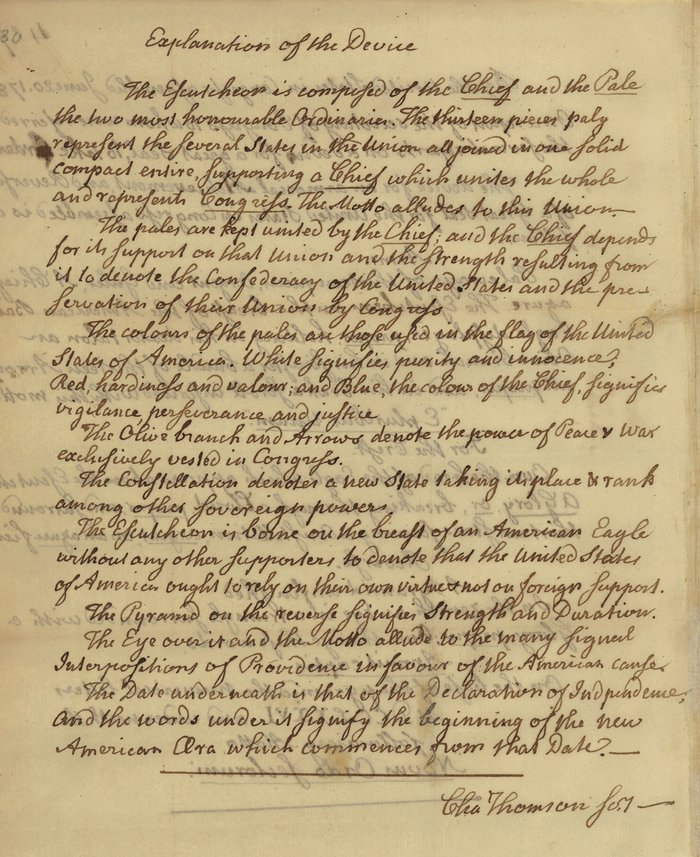 Explanation of the Device
The Escutcheon is composed of the Chief and the Pale
the two most honourable Ordinaries. The thirteen pieces paly
represent the several States in the Union all joined in one solid
compact entire, supporting a Chief which unites the whole
and represents Congress. The Motto alludes to this Union.
The pales are kept united by the Chief; and the Chief depends
for its support on that Union and the strength resulting from
it to denote the Confederacy of the United States and the pre-
servation of their Union by Congress
The colours of the pales are those used in the flag of the United
States of America. White signifies purity and innocence;
Red, hardiness and valour; and Blue, the colour of the Chief, signifies
vigilance perseverance and justice
The Olive branch and Arrows denote the power of Peace & War
exclusively vested in Congress.
The Constellation denotes a new State taking its place & rank
among other sovereign powers
The Escutcheon is borne on the breast of an American Eagle
without any other supporters to denote that the United States
of America ought to rely on their own virtue & not on foreign support.
The Pyramid on the reverse signifies Strength and Duration.
The Eye over it and the Motto allude to the many signal
Interpositions of Providence in favour of the American cause
The Date underneath is that of the Declaration of Independence,
and the words under it signify the beginning of the new
American Æra which commences from that Date.
Cha Thomson Secy